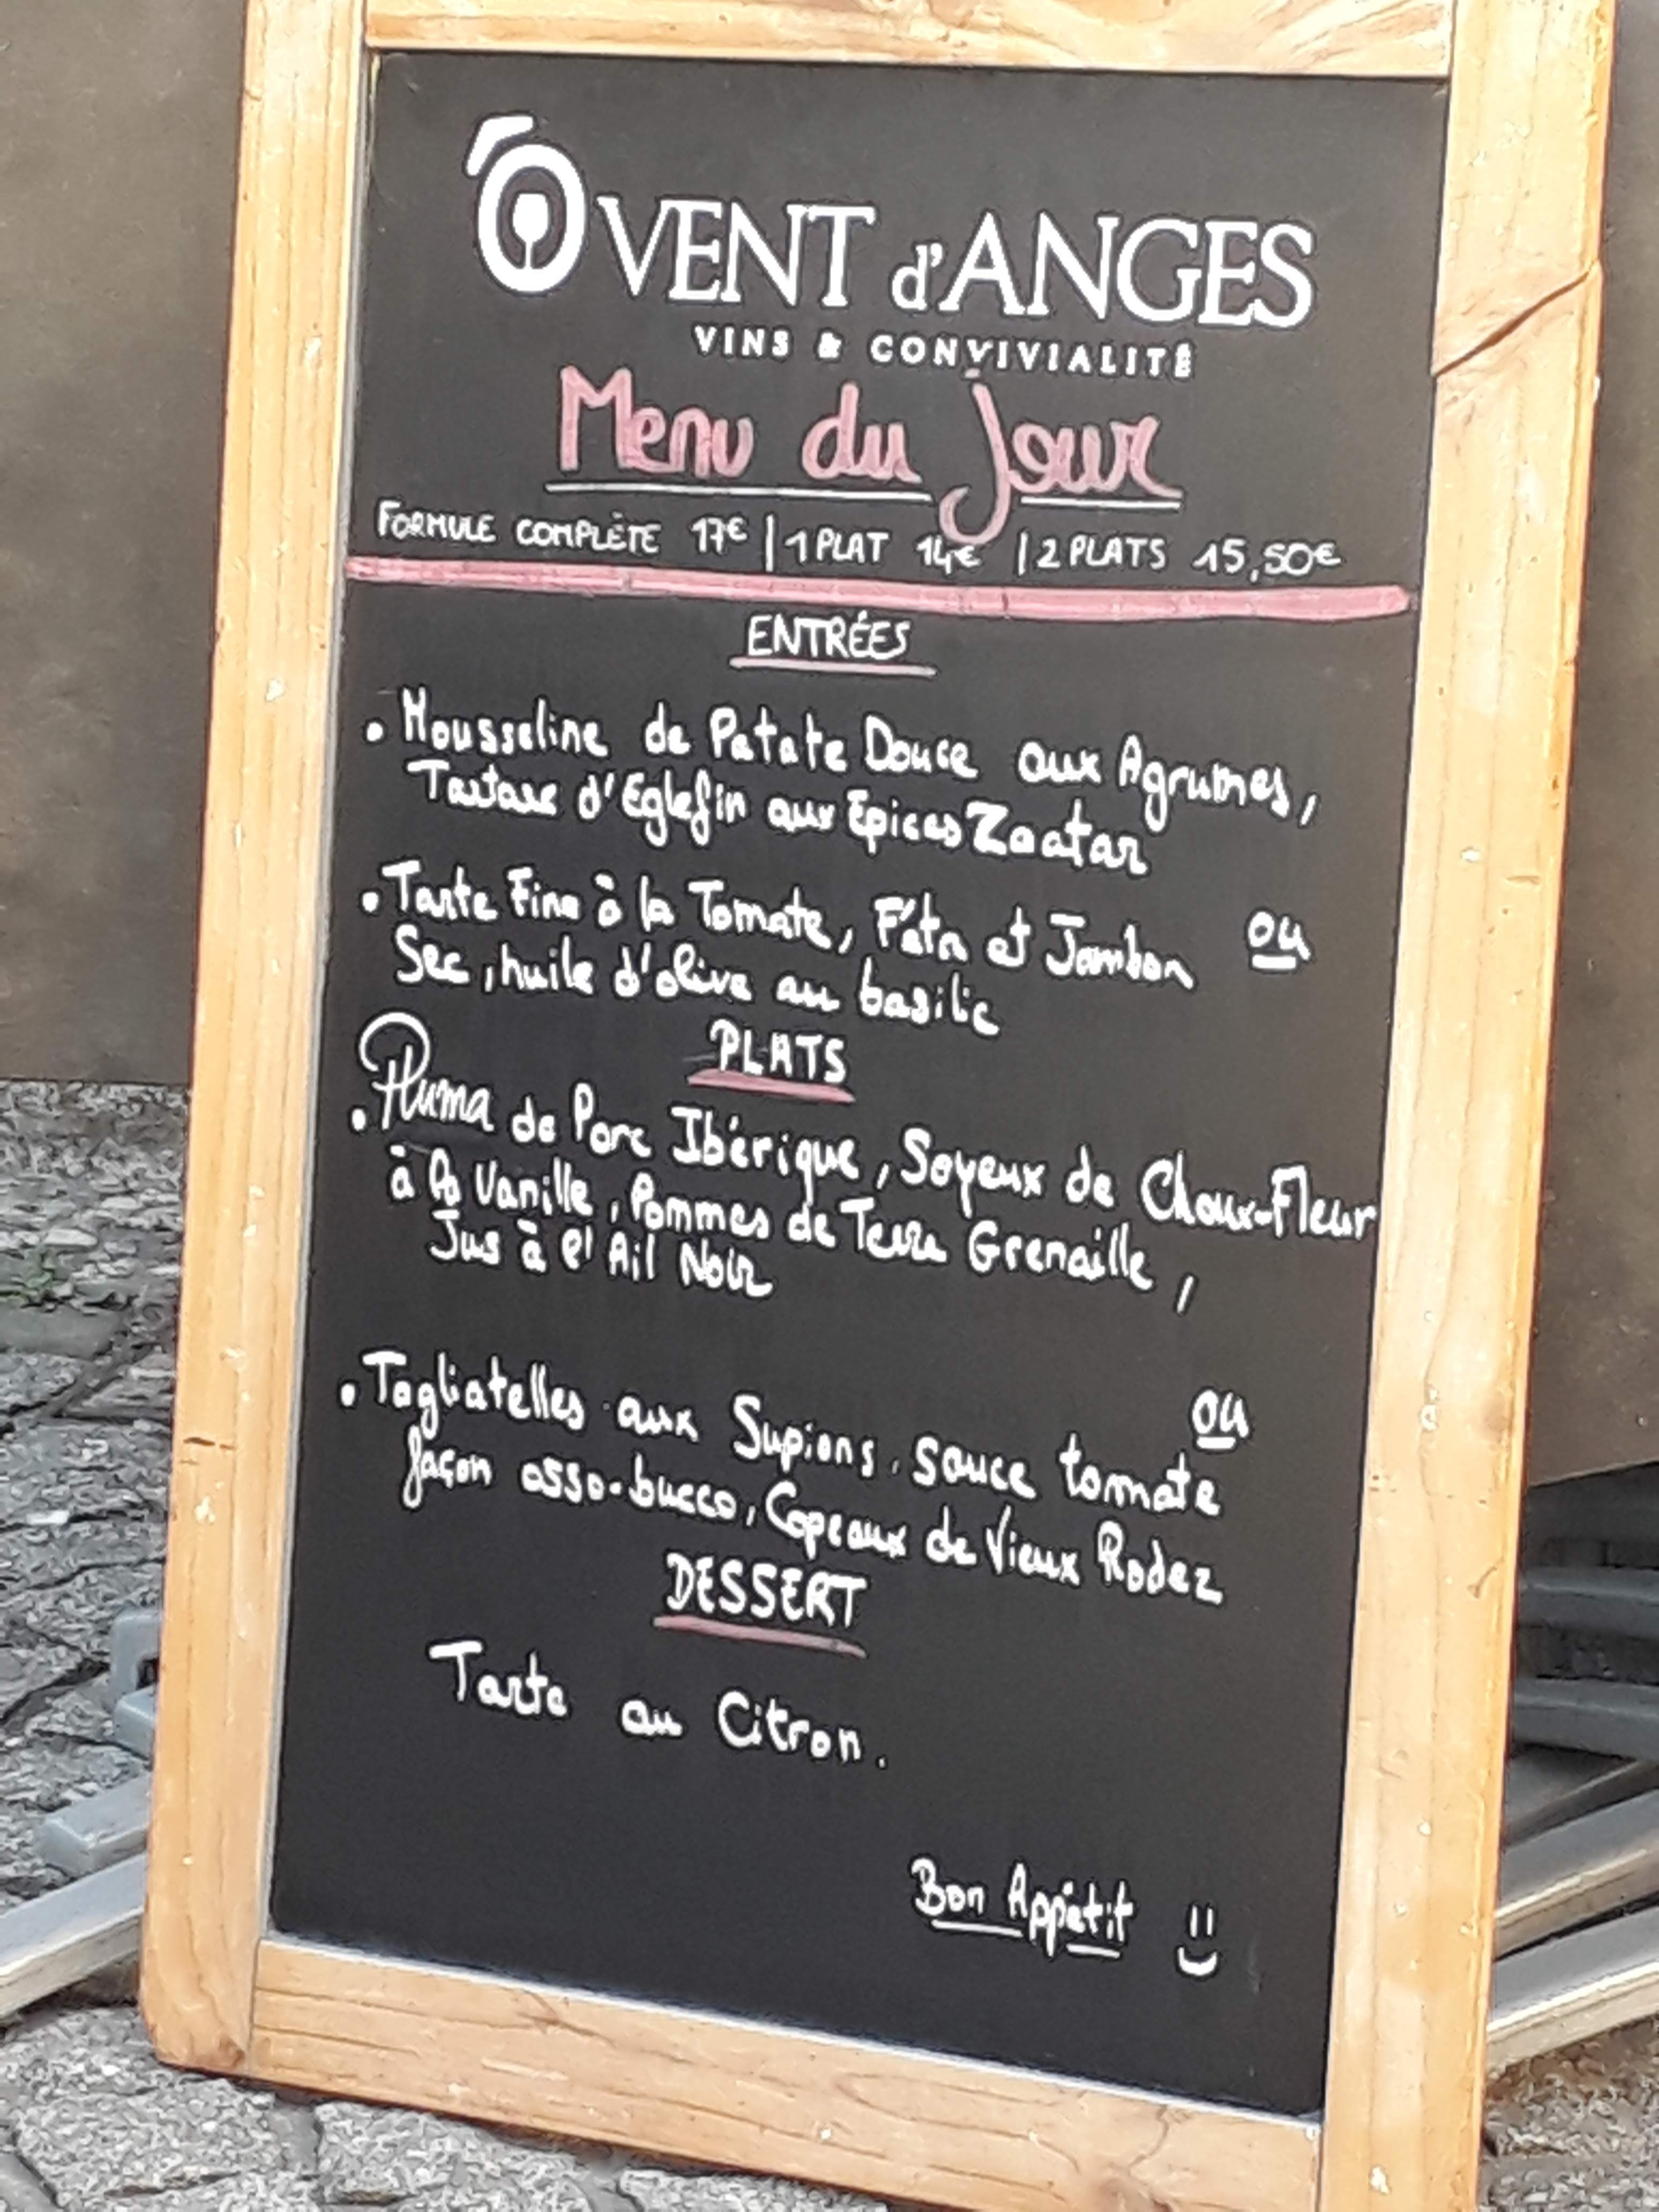 Ô VENT d'ANGES
VINS & CONVIVIALITÉ
Menu du Jour
FORMULE COMPLÈTE 17€ | 1 PLAT 14€ | 2 PLATS 15,50€
ENTRÉES
• Mousseline de Patate Douce aux Agrumes,
Tartare d'Eglefin aux Epices Zaatar
ou
• Tarte Fine à la Tomate, Féta et Jambon
Sec, huile d'olive au basilic
PLATS
• Pluma de Porc Ibérique, Soyeux de Choux-Fleur
à la Vanille, Pommes de Terre Grenaille,
Jus à l'Ail Noir
ou
• Tagliatelles aux Supions, sauce tomate
façon osso-bucco, Copeaux de Vieux Rodez
DESSERT
Tarte au Citron.
Bon Appétit